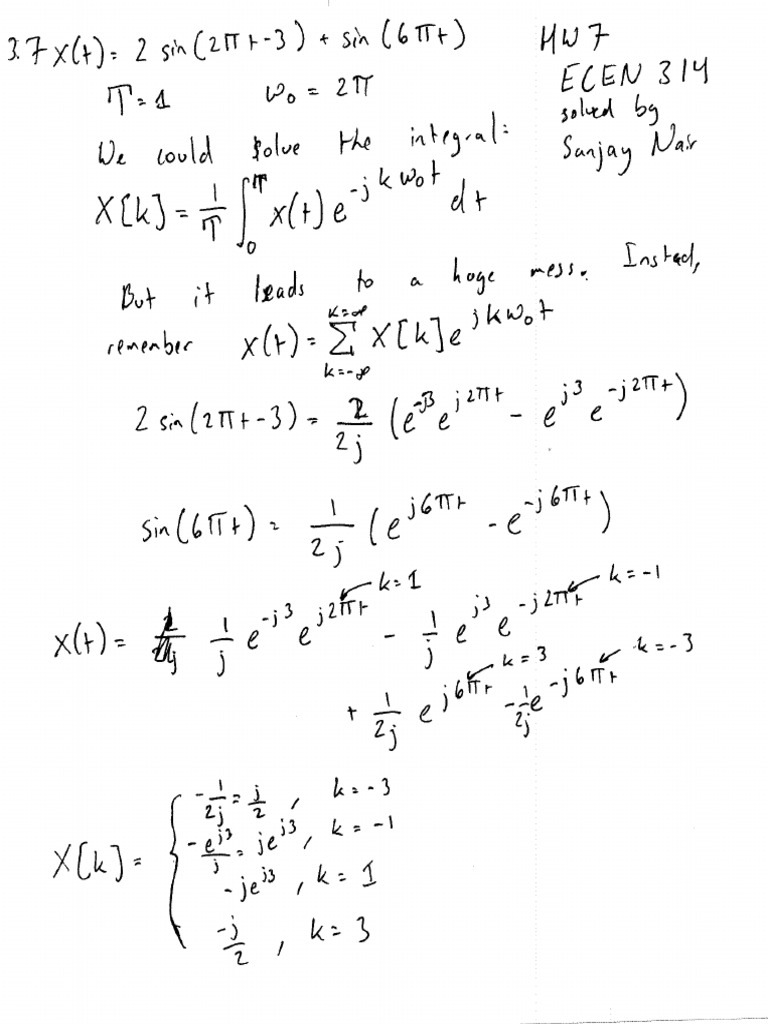 3.7 x(t) = 2 sin(2πt-3) + sin(6πt)
HW7
ECEN 314
solved by
Sanjay Nair
T=1 ω₀ = 2π
We could solve the integral:
X[k] = 1/T ∫₀ᵀ x(t) e^{-jkω₀t} dt
But it leads to a huge mess. Instead,
remember x(t) = Σ_{k=-∞}^{k=∞} X[k] e^{jkω₀t}
2 sin(2πt-3) = 2/2j (e^{-j3} e^{j2πt} - e^{j3} e^{-j2πt})
sin(6πt) = 1/2j (e^{j6πt} - e^{-j6πt})
x(t) = 1/j e^{-j3} e^{j2πt} k=1 - 1/j e^{j3} e^{-j2πt} k=-1
+ 1/2j e^{j6πt} k=3 - 1/2j e^{-j6πt} k=-3
X[k] = {
-1/2j = j/2, k=-3
-e^{j3}/j = je^{j3}, k=-1
-je^{j3}, k=1
-j/2, k=3